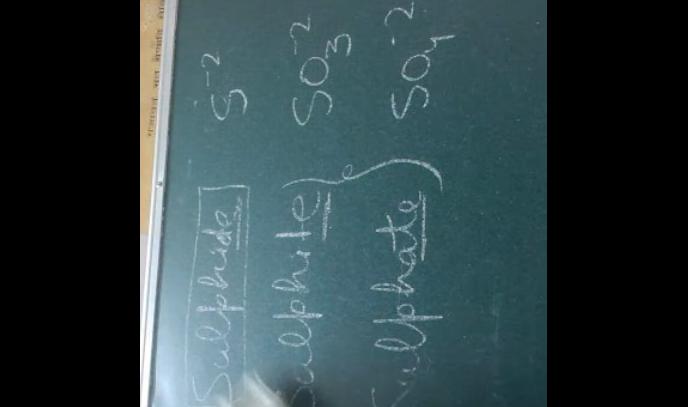 Sulphide S⁻²
Sulphite SO₃⁻²
Sulphate SO₄⁻²